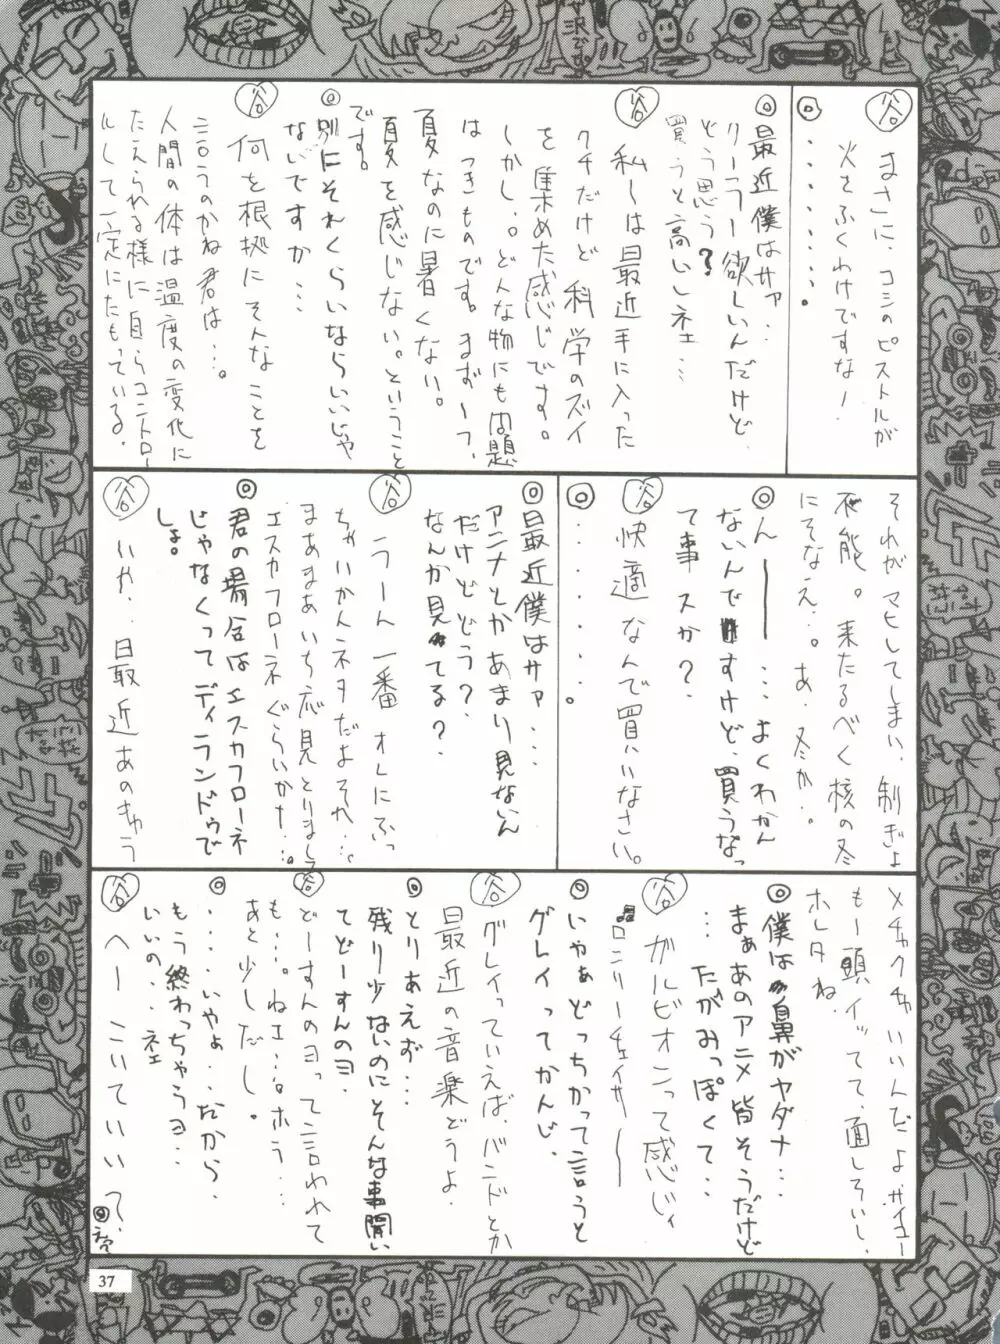 谷 まさに、コミのピストルが
火をふくわけですな!
◎‥‥‥‥‥‥‥。
◎最近僕はサァ‥
リーラー欲しいんだけど、
どう思う?
買うと高いしネェ‥‥
谷 私〜は最近手に入った
クチだけど 科学のズイ
を集めた感じです。
しかし。。どんな物にも問題
はつきものです。まず一つ、
夏なのに暑くない。
夏を感じない。ということ
です。
◎別にそれくらいならいいじゃ
ないですか‥‥
谷 何を根拠にそんなことを
言うのかね君は‥‥。
人間の体は温度の変化に
たえられる様に自らコントロー
ルして一定にたもっている。
それがマヒしてしまい、制ぎょ
不能。来たるべく核の冬
にそなえ‥。あ、冬か‥
◎ん――‥‥よくわかん
ないんですけど、買うなっ
て事スか?
谷 快適なんで買いなさい。
◎‥‥‥‥‥‥。
◎最近僕はサァ‥‥
アニメとかあまり見ないん
だけどどう?
なんか見てる?
谷 うーん 一番 オレにふっ
ちゃいかんネタだよそれ‥。
まあまあいち応見とりまして
エスカフローネぐらいか!‥。
◎君の場合はエスカフローネ
じゃなくってディランドゥで
しょ。
谷 いや‥最近あのきゅう
メチャクチャいいんだよ、サイコー
もー頭イッてて、面しろいし、
ホレタね。
◎僕は鼻がヤダナ‥‥
まぁあのアニメ皆そうだけど
‥‥たがみっぽくて‥‥
谷 ガルビオンって感じィ
♫ロンリーチェイサー――
◎いやぁどっちかって言うと
グレイってかんじ
谷 グレイっていえば、バンドとか
最近の音楽どうよ。
◎とりあえず‥‥
残り少ないのにそんな事聞い
てどーすんのヨ。
谷 どーすんのヨって言われて
も‥‥。ねェ‥‥。ホラ‥‥
あと少しだし。
◎‥‥‥いやぁ‥だから、
もう終わっちゃうヨ‥‥
いいの‥‥ネェ
谷 へー こいていいって、
◎
37